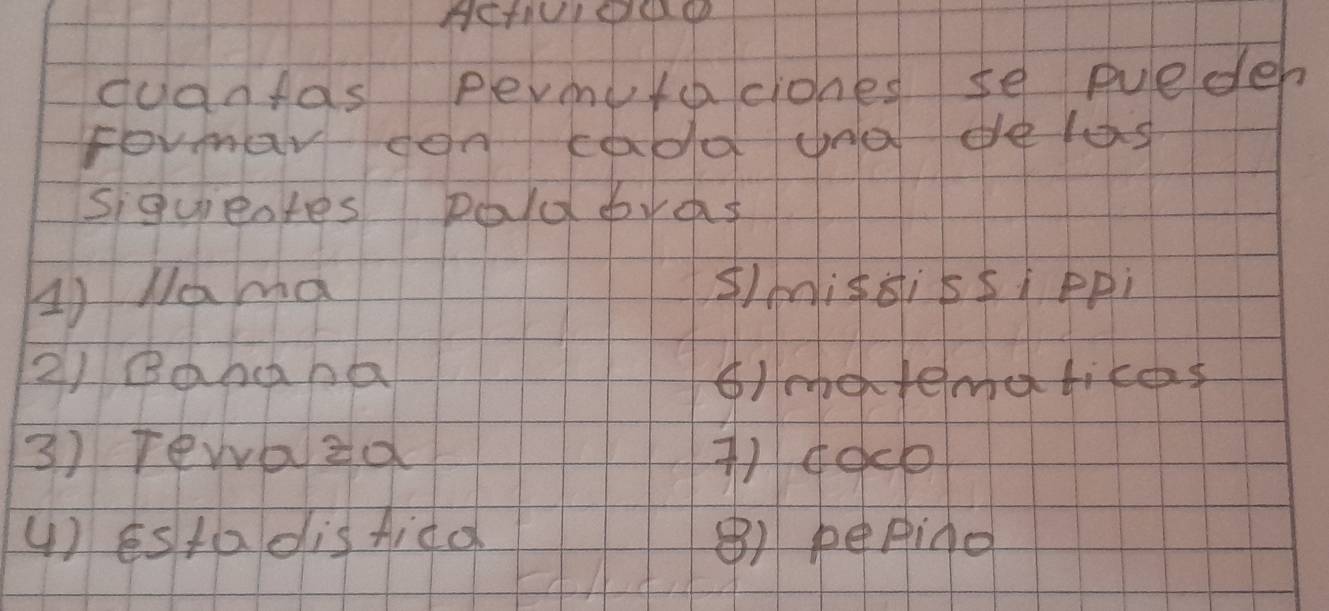 Actividad
cuantas permutaciones se pueden
Formar con cada una de las
siguientes palabras
1) llama
5) mississippi
2) Banana
6) matematicas
3) Terraza
7) coco
4) Estadistica
8) pepino
Solucion